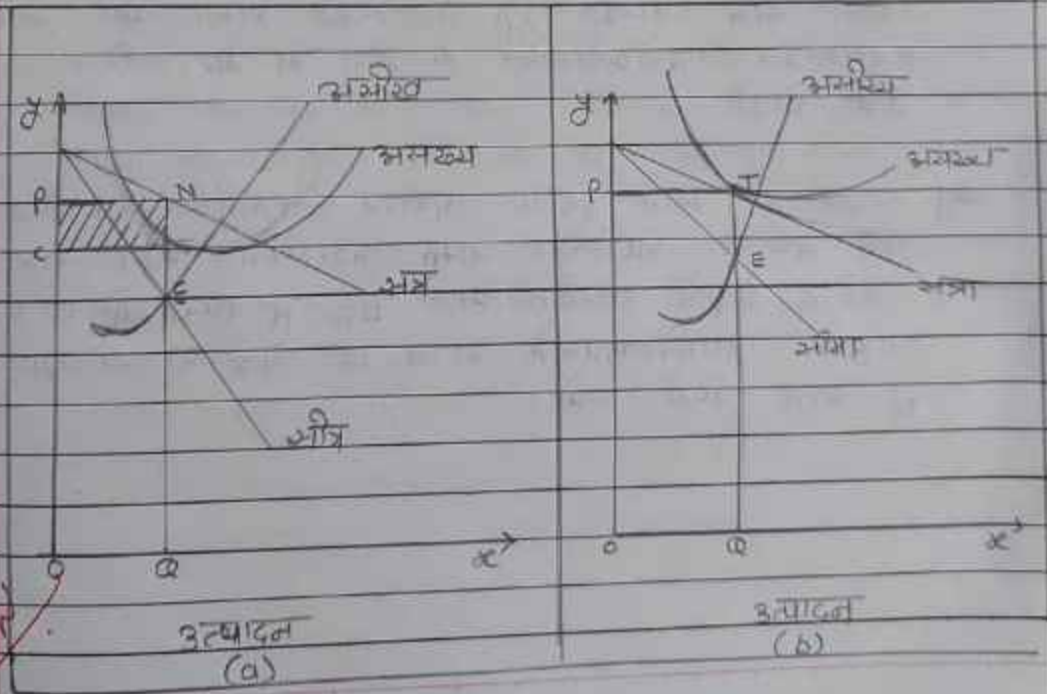 y
असीख
असख्य
P
N
C
E
सत्र
सीत्र
O
Q
x
उत्पादन
(a)
y
असीख्य
असख्य
P
T
E
सत्रा
सीमा
O
Q
x
उत्पादन
(b)